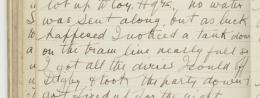 lot up to Coy. Hdqrs. no water
was sent along, but as luck
happened I noticed a tank down
on the tram line nearly full so
I got all the dixies I could of
& took the party down